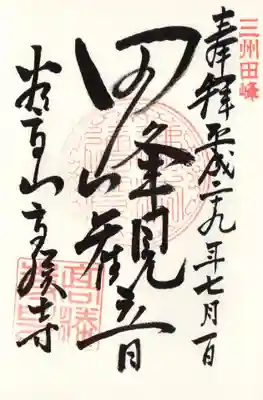 三州田峰
奉拝 平成二十九年七月一日
田峯観音
谷高山高勝寺